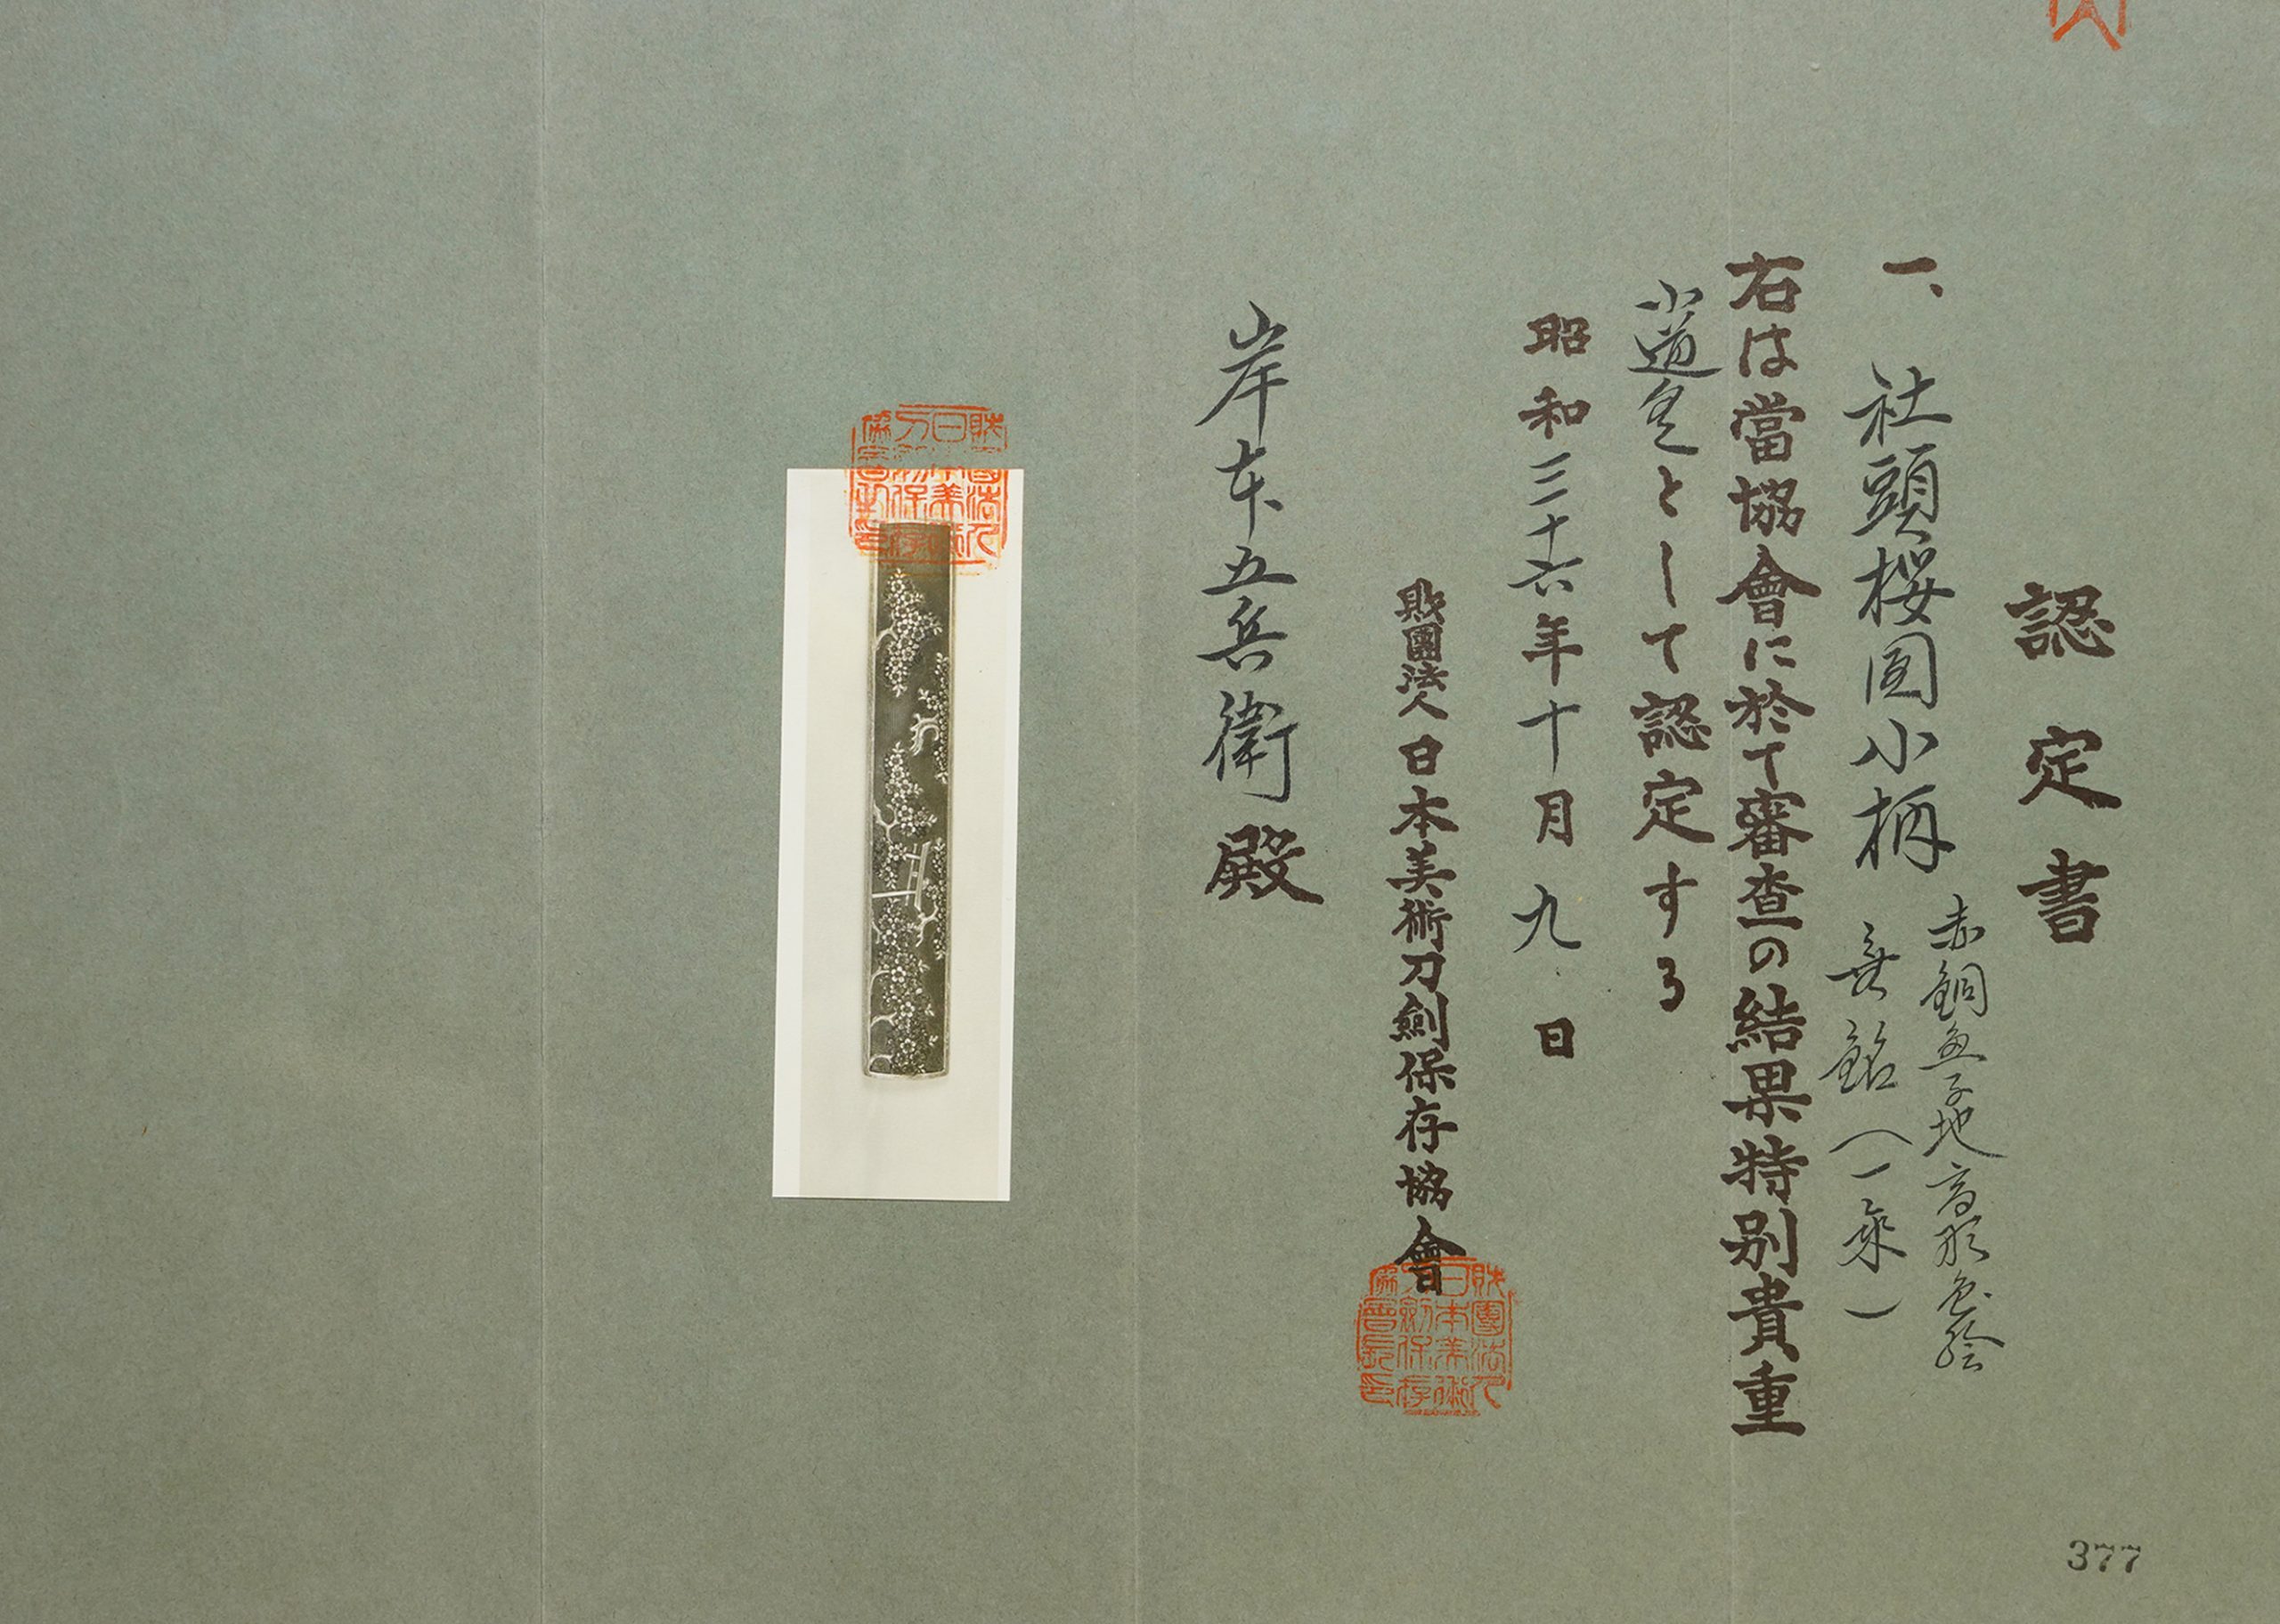 認定書
一、社頭桜図小柄
赤銅魚子地高彫色絵
無銘（一乘）
右は當協會に於て審査の結果特別貴重
小道具として認定する
昭和三十六年十月九日
財團法人日本美術刀劍保存協會
財團法人日本美術刀劍保存協會長印
岸本五兵衛殿
377